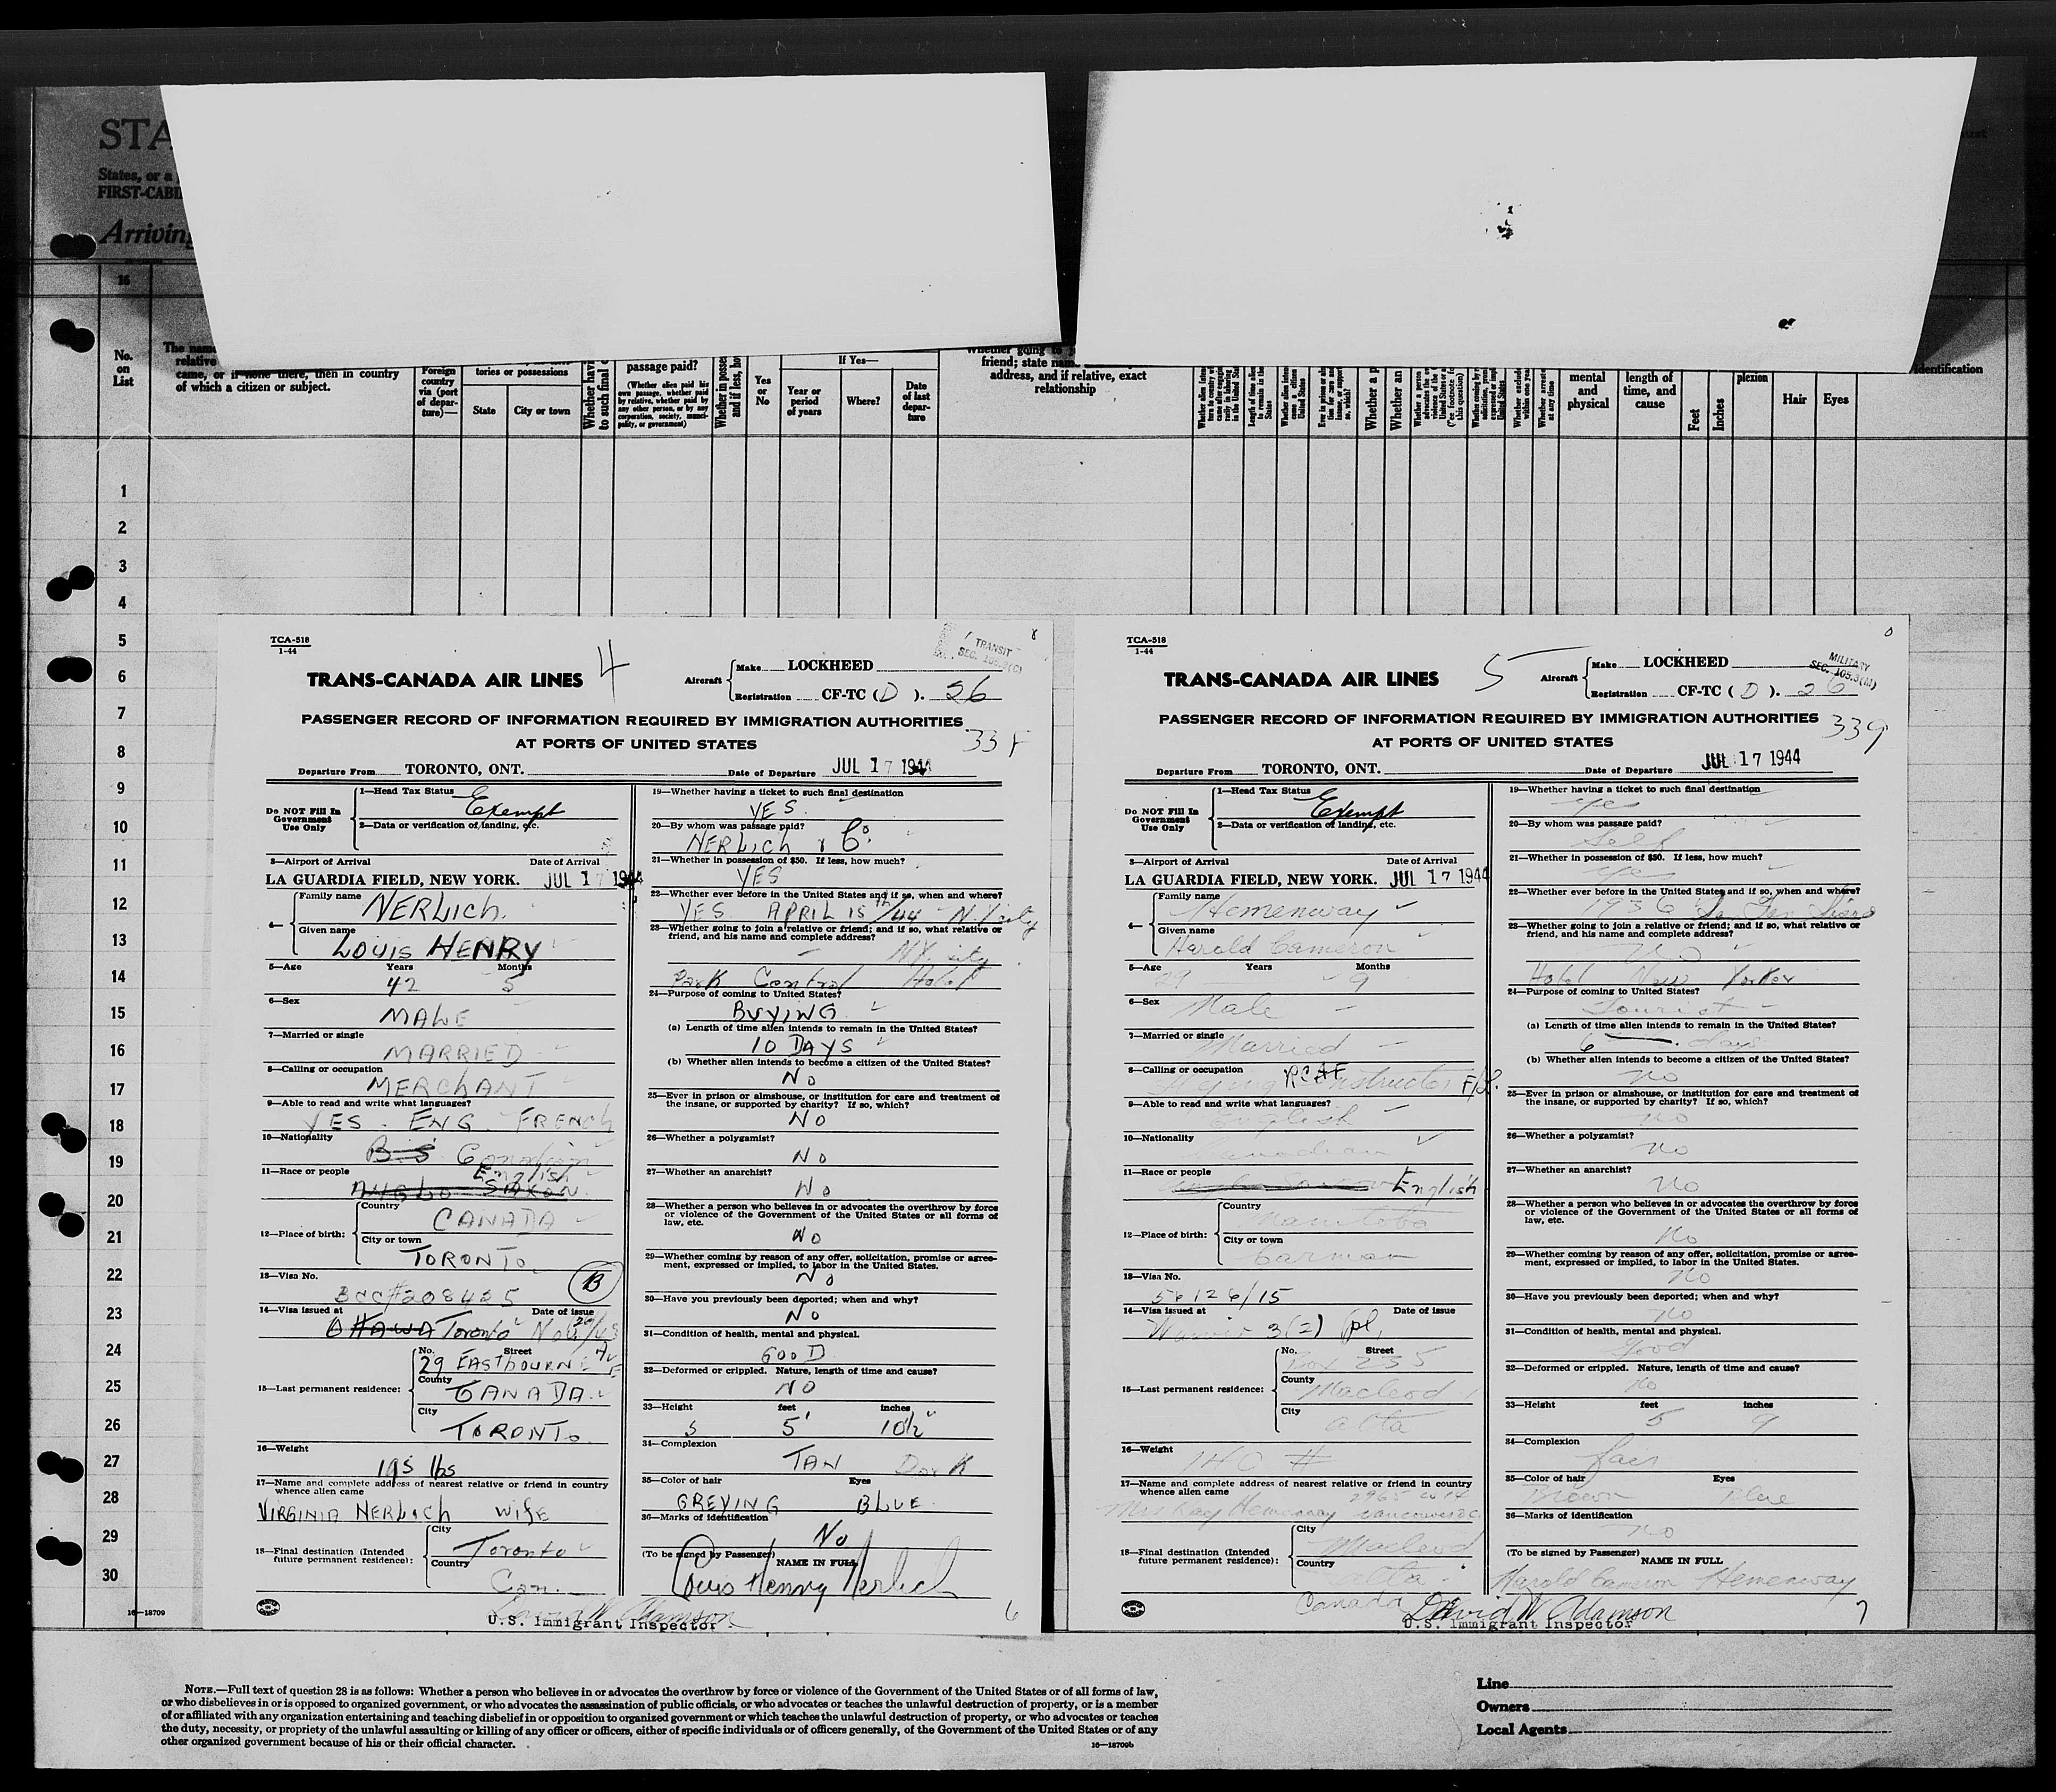 STA
States, or a
FIRST-CABI
Arriving
16
No. on List
The name
relative
came, or if none there, then in country
of which a citizen or subject.
Foreign country via (port of departure)—
tories or possessions
State
City or town
Whether havi
to such final
passage paid?
(Whether alien paid his own passage, whether paid by relative, whether paid by any other person, or by any corporation, society, municipality, or government)
Whether in posses
and if less, ho
Yes or No
If Yes—
Year or period of years
Where?
Date of last departure
Whether going to
friend; state nam
address, and if relative, exact
relationship
Whether a p
Whether an
mental and physical
length of time, and cause
Feet
Inches
plexion
Hair
Eyes
identification
1
2
3
4
5
6
7
8
9
10
11
12
13
14
15
16
17
18
19
20
21
22
23
24
25
26
27
28
29
30
16—18709
TCA-518
1-44
4
TRANSIT
SEC. 105.3(C)
TRANS-CANADA AIR LINES
Aircraft
Make LOCKHEED
Registration CF-TC (D). 26
PASSENGER RECORD OF INFORMATION REQUIRED BY IMMIGRATION AUTHORITIES
AT PORTS OF UNITED STATES
338
Departure From TORONTO, ONT. Date of Departure JUL 17 1944
Do NOT Fill In
Government
Use Only
1—Head Tax Status
Exempt
2—Data or verification of landing, etc.
3—Airport of Arrival Date of Arrival
LA GUARDIA FIELD, NEW YORK. JUL 17 1944
4—
Family name
NERLICH.
Given name
LOUIS HENRY
5—Age Years Months
42 5
6—Sex
MALE
7—Married or single
MARRIED
8—Calling or occupation
MERCHANT
9—Able to read and write what languages?
YES. ENG. FRENCH
10—Nationality
B.S Canadian
11—Race or people
English
ANGLO SAXON.
12—Place of birth:
Country
CANADA
City or town
TORONTO.
13—Visa No.
BCC#208405
B
14—Visa issued at Date of issue
OTTAWA Toronto
15—Last permanent residence:
No. Street
29 EASTBOURNE AVE
County
CANADA.
City
TORONTO
16—Weight
195 lbs
17—Name and complete address of nearest relative or friend in country
whence alien came
VIRGINIA NERLICH WIFE
18—Final destination (Intended
future permanent residence):
City
Toronto
Country
Can.
19—Whether having a ticket to such final destination
YES.
20—By whom was passage paid?
NERLICH & Co.
21—Whether in possession of $50. If less, how much?
YES
22—Whether ever before in the United States and if so, when and where?
YES. APRIL 15th/44 - N.Y. city
23—Whether going to join a relative or friend; and if so, what relative or
friend, and his name and complete address?
- N.Y. city
Park Central Hotel
24—Purpose of coming to United States?
BUYING
(a) Length of time alien intends to remain in the United States?
10 DAYS
(b) Whether alien intends to become a citizen of the United States?
No
25—Ever in prison or almshouse, or institution for care and treatment of
the insane, or supported by charity? If so, which?
No
26—Whether a polygamist?
No
27—Whether an anarchist?
No
28—Whether a person who believes in or advocates the overthrow by force
or violence of the Government of the United States or all forms of
law, etc.
No
29—Whether coming by reason of any offer, solicitation, promise or agree-
ment, expressed or implied, to labor in the United States.
No
30—Have you previously been deported; when and why?
No
31—Condition of health, mental and physical.
GOOD
32—Deformed or crippled. Nature, length of time and cause?
NO
33—Height feet inches
5 5' 10½"
34—Complexion
TAN Dark
35—Color of hair Eyes
GREYING BLUE.
36—Marks of identification
No
(To be signed by Passenger)
NAME IN FULL
Louis Henry Nerlich
David W Adamson
U.S. Immigrant Inspector
6
TCA-518
1-44
5
MILITARY
SEC. 105.3(M)
TRANS-CANADA AIR LINES
Aircraft
Make LOCKHEED
Registration CF-TC (D). 26
PASSENGER RECORD OF INFORMATION REQUIRED BY IMMIGRATION AUTHORITIES
AT PORTS OF UNITED STATES
339
Departure From TORONTO, ONT. Date of Departure JUL 17 1944
Do NOT Fill In
Government
Use Only
1—Head Tax Status
Exempt
2—Data or verification of landing, etc.
3—Airport of Arrival Date of Arrival
LA GUARDIA FIELD, NEW YORK. JUL 17 1944
4—
Family name
Hemenway
Given name
Harold Cameron
5—Age Years Months
29 9
6—Sex
Male
7—Married or single
Married
8—Calling or occupation
Flying RCAF Instructor F/L.
9—Able to read and write what languages?
English
10—Nationality
Canadian
11—Race or people
English
12—Place of birth:
Country
Manitoba
City or town
Carman
13—Visa No.
56126/15
14—Visa issued at Date of issue
Waiver 3(2) Gpl.
15—Last permanent residence:
No. Street
Box 235
County
Macleod
City
alta
16—Weight
140 #
17—Name and complete address of nearest relative or friend in country
whence alien came
Mrs Kay Hemenway Vancouver BC
18—Final destination (Intended
future permanent residence):
City
Macleod
Country
alta.
Canada
19—Whether having a ticket to such final destination
yes
20—By whom was passage paid?
Self
21—Whether in possession of $50. If less, how much?
yes
22—Whether ever before in the United States and if so, when and where?
1936
23—Whether going to join a relative or friend; and if so, what relative or
friend, and his name and complete address?
No
Hotel New Yorker
24—Purpose of coming to United States?
Tourist
(a) Length of time alien intends to remain in the United States?
6 days
(b) Whether alien intends to become a citizen of the United States?
no
25—Ever in prison or almshouse, or institution for care and treatment of
the insane, or supported by charity? If so, which?
no
26—Whether a polygamist?
no
27—Whether an anarchist?
no
28—Whether a person who believes in or advocates the overthrow by force
or violence of the Government of the United States or all forms of
law, etc.
no
29—Whether coming by reason of any offer, solicitation, promise or agree-
ment, expressed or implied, to labor in the United States.
no
30—Have you previously been deported; when and why?
no
31—Condition of health, mental and physical.
good
32—Deformed or crippled. Nature, length of time and cause?
no
33—Height feet inches
5 9
34—Complexion
fair
35—Color of hair Eyes
Brown Blue
36—Marks of identification
no
(To be signed by Passenger)
NAME IN FULL
Harold Cameron Hemenway
David W Adamson
U.S. Immigrant Inspector
7
NOTE.—Full text of question 28 is as follows: Whether a person who believes in or advocates the overthrow by force or violence of the Government of the United States or of all forms of law,
or who disbelieves in or is opposed to organized government, or who advocates the assassination of public officials, or who advocates or teaches the unlawful destruction of property, or is a member
of or affiliated with any organization entertaining and teaching disbelief in or opposition to organized government or which teaches the unlawful destruction of property, or who advocates or teaches
the duty, necessity, or propriety of the unlawful assaulting or killing of any officer or officers, either of specific individuals or of officers generally, of the Government of the United States or of any
other organized government because of his or their official character.
16—18709b
Line
Owners
Local Agents